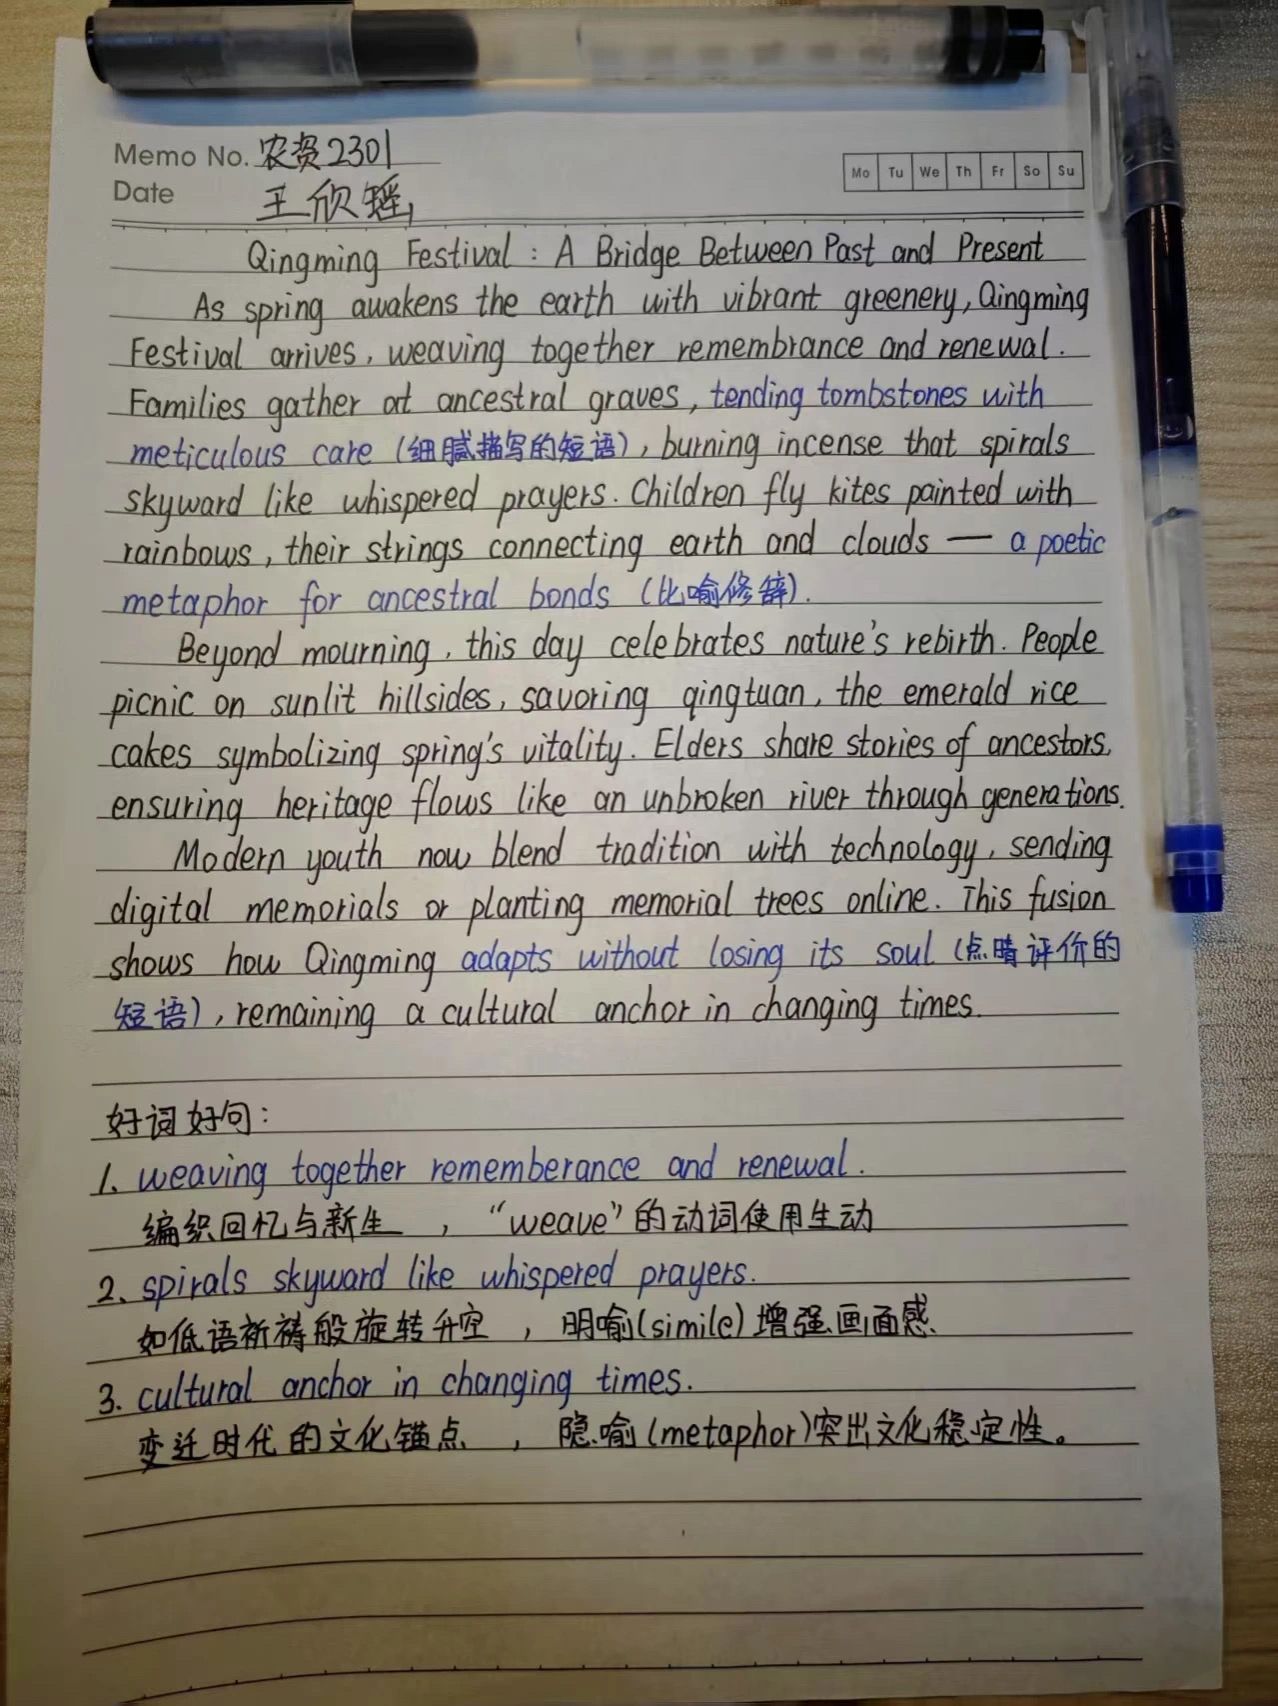 Memo No. 农资2301
Date 王欣瑶
Mo Tu We Th Fr Sa Su
Qingming Festival : A Bridge Between Past and Present
As spring awakens the earth with vibrant greenery, Qingming
Festival arrives, weaving together remembrance and renewal.
Families gather at ancestral graves, tending tombstones with
meticulous care (细腻描写的短语), burning incense that spirals
skyward like whispered prayers. Children fly kites painted with
rainbows, their strings connecting earth and clouds — a poetic
metaphor for ancestral bonds (比喻修辞).
Beyond mourning, this day celebrates nature's rebirth. People
picnic on sunlit hillsides, savoring qingtuan, the emerald rice
cakes symbolizing spring's vitality. Elders share stories of ancestors,
ensuring heritage flows like an unbroken river through generations.
Modern youth now blend tradition with technology, sending
digital memorials or planting memorial trees online. This fusion
shows how Qingming adapts without losing its soul (点睛评价的
短语), remaining a cultural anchor in changing times.
好词好句:
1. weaving together rememberance and renewal.
编织回忆与新生 , "weave"的动词使用生动
2. spirals skyward like whispered prayers.
如低语祈祷般旋转升空 , 明喻(simile)增强画面感.
3. cultural anchor in changing times.
变迁时代的文化锚点 , 隐喻(metaphor)突出文化稳定性。